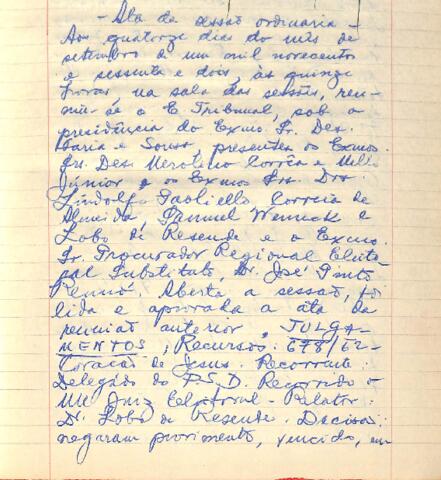 - Ata da sessão ordinaria -
Aos quatorze dias do mês de
setembro de um mil novecentos
e sessenta e dois, às quinze
horas, na sala das sessões, reu-
niu-se o E. Tribunal, sob a
presidência do Exmo. Sr. Des.
Faria e Sousa, presentes os Exmos.
Srs. Des. Merolino Corrêa e Mello
Júnior e os Exmos Srs. Drs.
Lindolfo Paoliello, Correia de
Almeida, Samuel Werneck e
Lobo de Resende e o Exmo.
Sr. Procurador Regional Eleito-
ral Substituto, Dr. José Pinto
Rennó. Aberta a sessão, foi
lida e aprovada a ata da
reunião anterior. JULGA-
MENTOS; Recursos: 678/62-
Coração de Jesus. Recorrente:
Delegado do P.S.D. Recorrido o
MM Juiz Eleitoral - Relator:
Dr. Lobo de Resende. Decisão:
negaram provimento, vencido, em